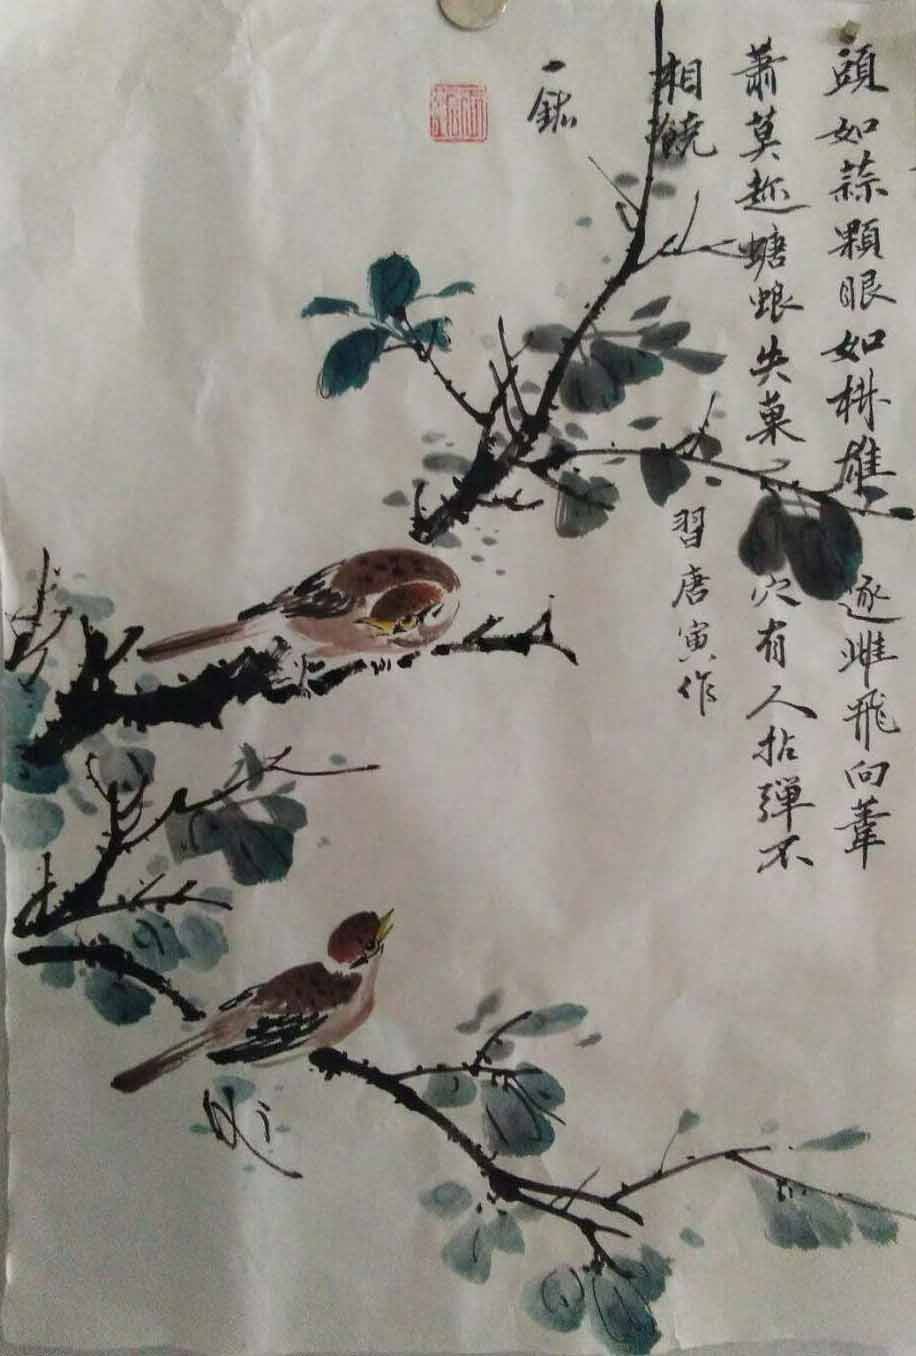 頭如蒜顆眼如椒雄逐雌飛向葦
蕭莫趂螗蜋失菓穴有人拈彈不
相饒
習唐寅作
一